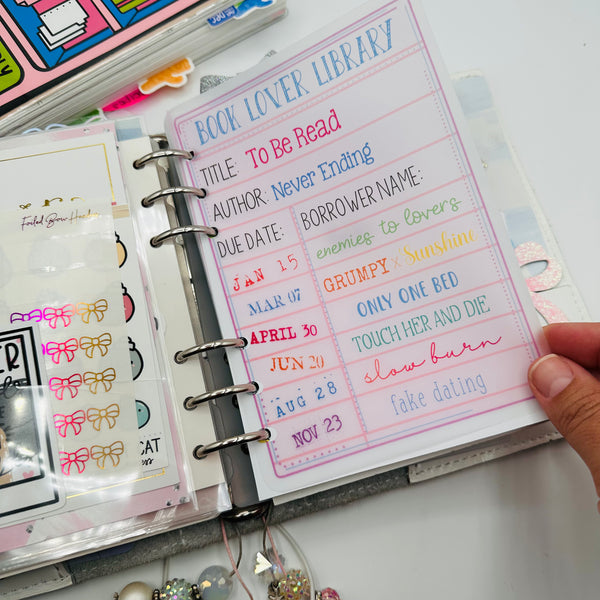 BOOK LOVER LIBRARY
TITLE: To Be Read
AUTHOR: Never Ending
DUE DATE: BORROWER NAME:
JAN 15 enemies to lovers
MAR 07 GRUMPY x Sunshine
APRIL 30 ONLY ONE BED
JUN 20 TOUCH HER AND DIE
AUG 28 slow burn
NOV 23 fake dating
Foiled Bow Header
CAT